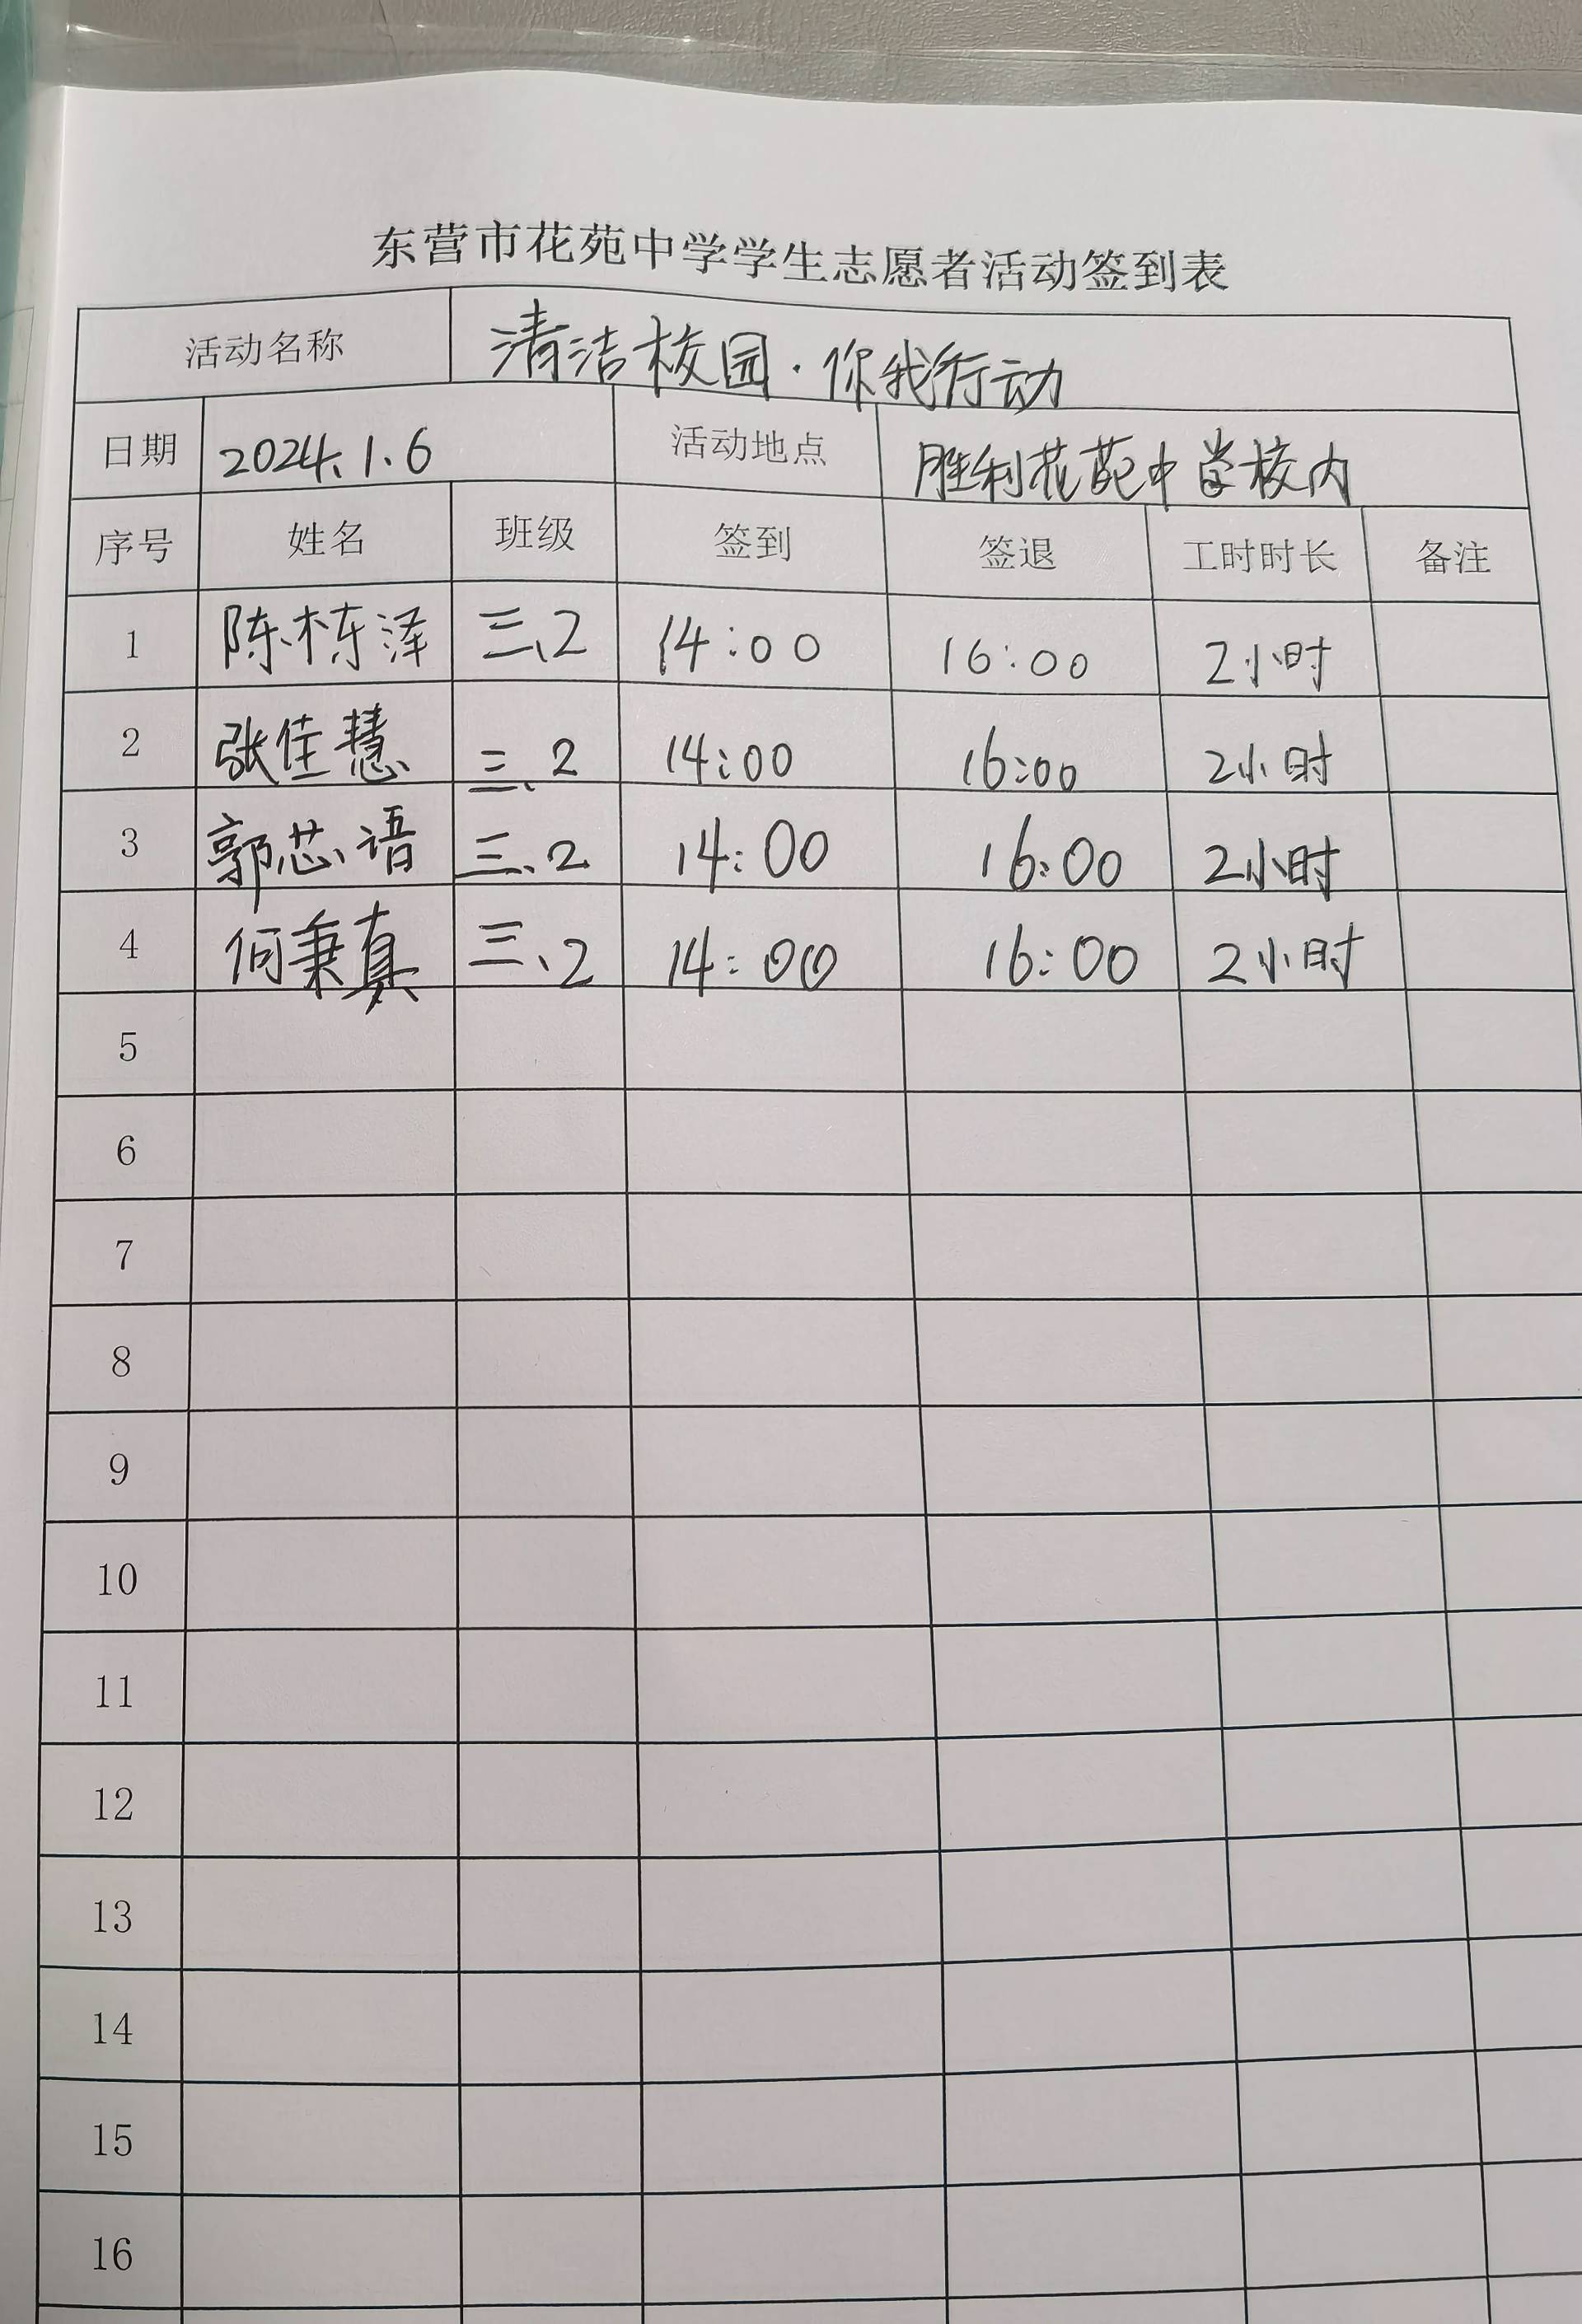 东营市花苑中学学生志愿者活动签到表
活动名称 清洁校园·你我行动
日期 2024.1.6 活动地点 胜利花苑中学校内
序号 姓名 班级 签到 签退 工时时长 备注
1 陈栋泽 三、2 14:00 16:00 2小时
2 张佳慧 三、2 14:00 16:00 2小时
3 郭芯语 三、2 14:00 16:00 2小时
4 何秉真 三、2 14:00 16:00 2小时
5
6
7
8
9
10
11
12
13
14
15
16